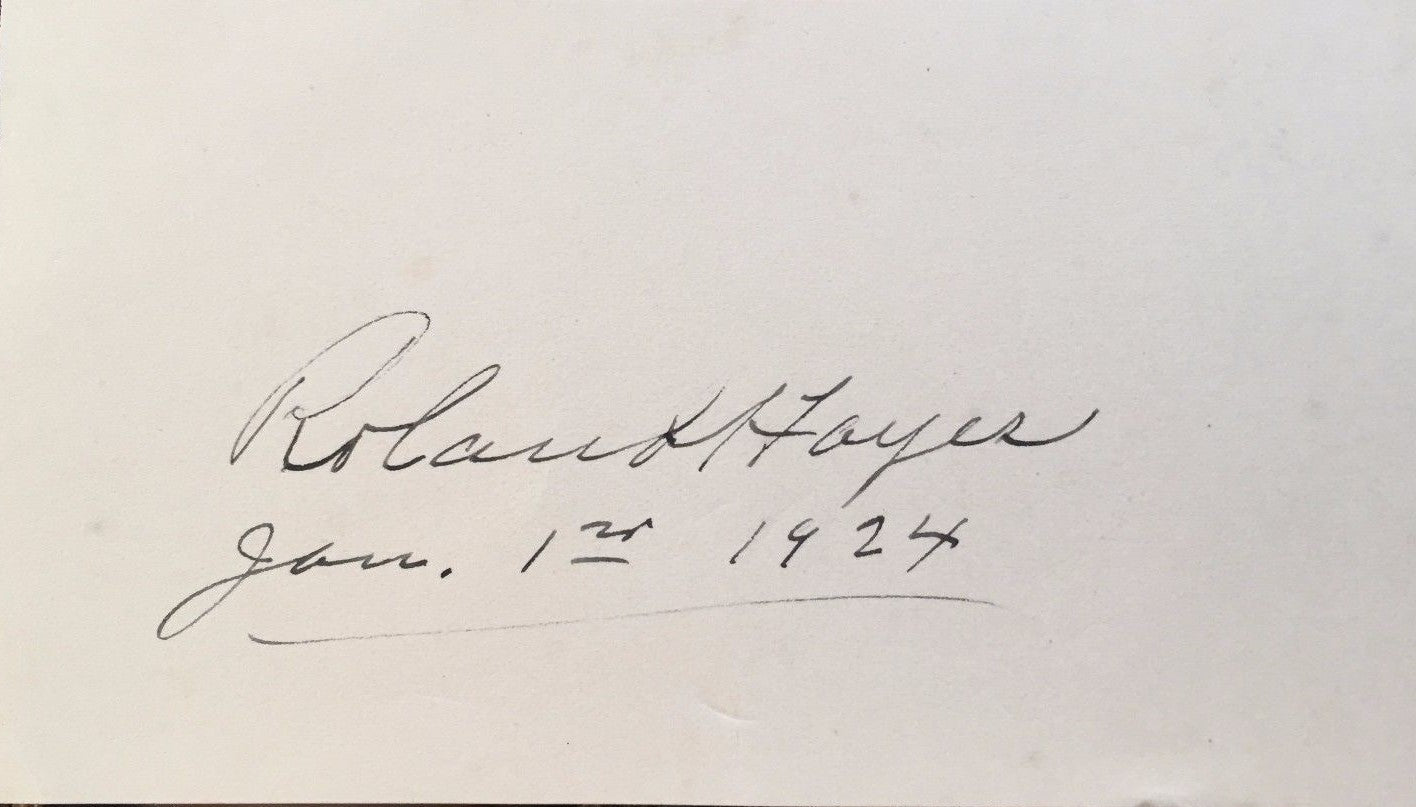 Roland Hayes
Jan. 1st 1924